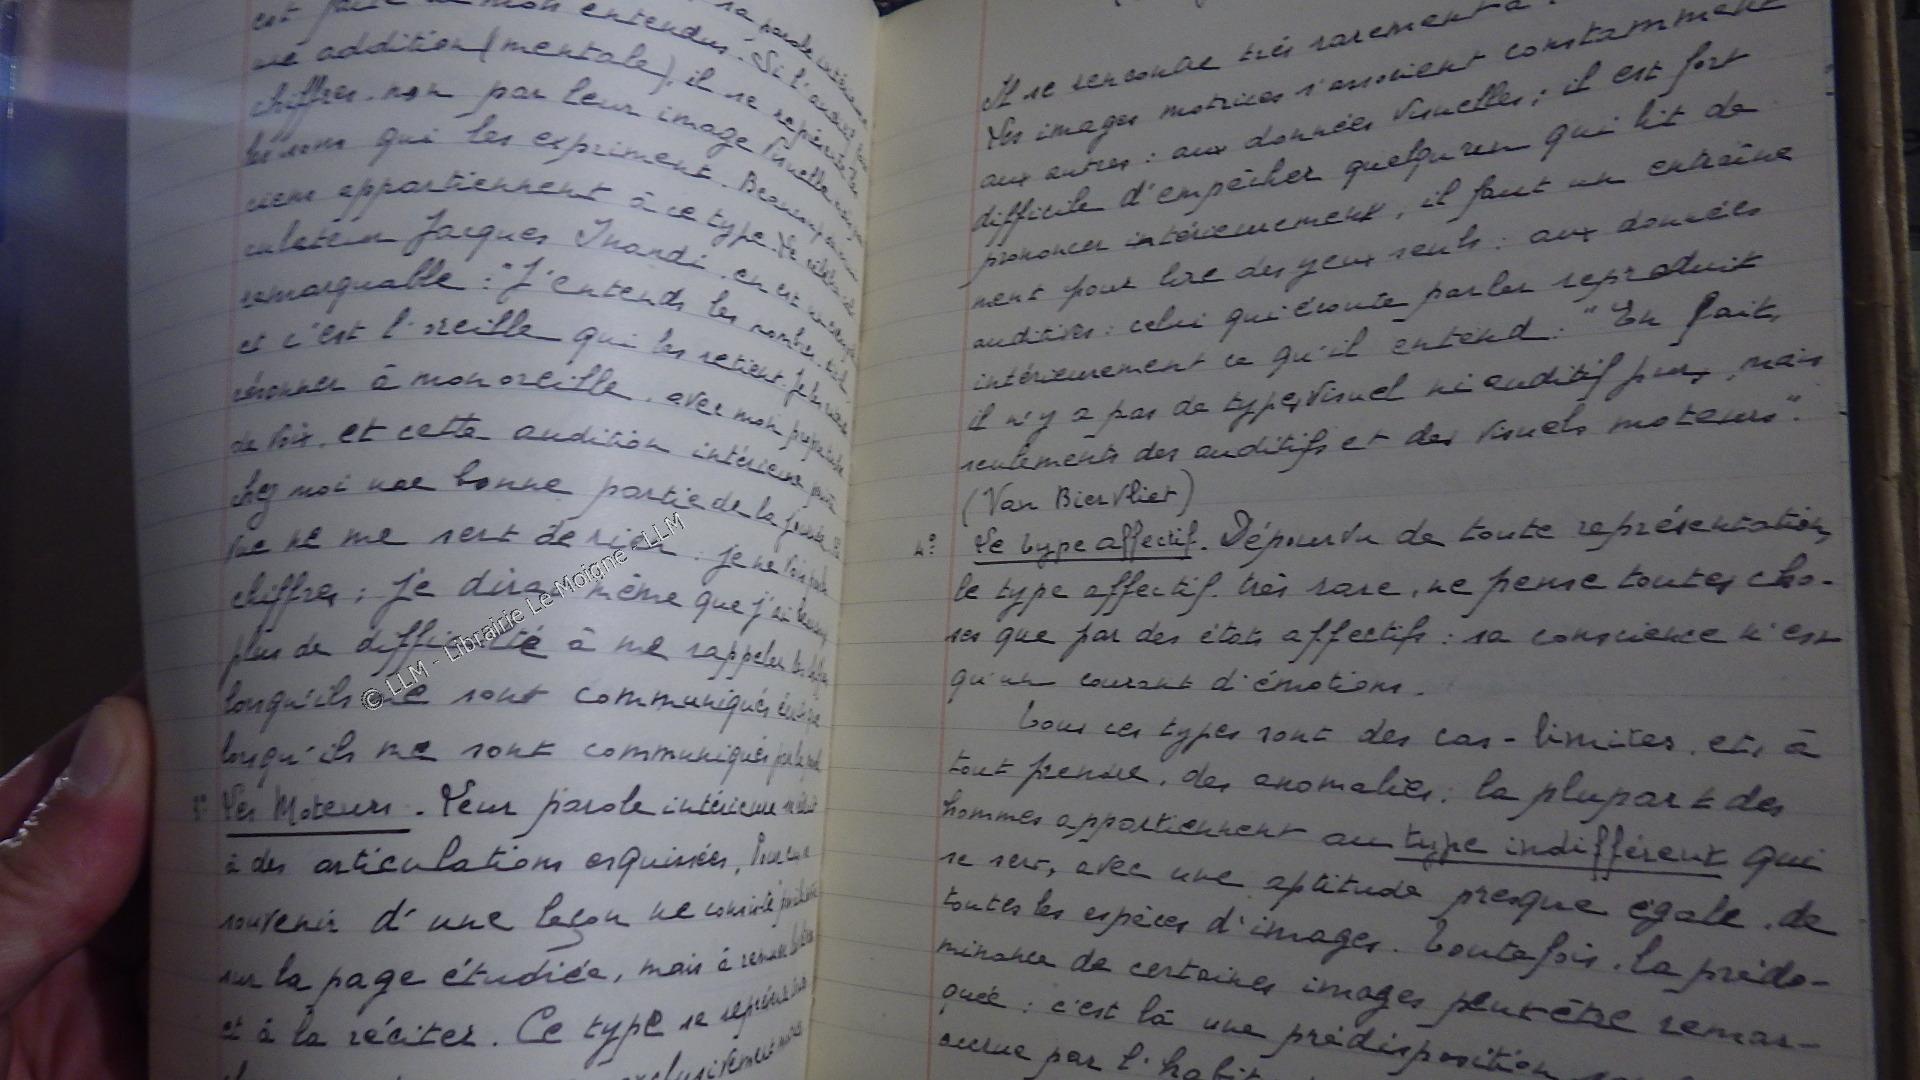 est par la mon entendus. Si l'auditif
une addition (mentale), il se représente les
chiffres, non par leur image visuelle, mais par
les sons qui les expriment. Beaucoup de
ciens appartiennent à ce type. Le célèbre cal
culateur Jacques Inaudi, en est un exemple
remarquable : "J'entends les nombres
et c'est l'oreille qui les retient. Je les
résonner à mon oreille, avec mon propre
de voix, et cette audition intérieure
chez moi une bonne partie de la journée
vue ne me sert de rien : je ne vois pas les
chiffres ; je dirai même que j'ai beaucoup
plus de difficulté à me rappeler les chiffres
lorsqu'ils me sont communiqués
lorsqu'ils me sont communiqués par la parole
3° Les Moteurs. Leur parole intérieure se réduit
à des articulations esquissées. Pour eux
souvenir d'une leçon ne consiste pas
sur la page étudiée, mais à
et à la réciter. Ce type se
exclusivement
Il se rencontre très rarement
Les images motrices s'associent constamment
aux autres : aux données visuelles ; il est fort
difficile d'empêcher quelqu'un qui lit de
prononcer intérieurement, il faut un entraîne
ment pour lire des yeux seuls : aux données
auditives : celui qui écoute parler reproduit
intérieurement ce qu'il entend. "En fait,
il n'y a pas de types visuel ni auditif purs, mais
seulements des auditifs et des visuels moteurs".
(Van Biervliet)
4° Le type affectif. Dépourvu de toute représentation,
le type affectif, très rare, ne pense toutes cho-
ses que par des états affectifs : sa conscience n'est
qu'un courant d'émotions.
Tous ces types sont des cas-limites, et, à
tout prendre, des anomalies ; la plupart des
hommes appartiennent au type indifférent qui
se sert, avec une aptitude presque égale, de
toutes les espèces d'images. Toutefois, la prédo-
minance de certaines images peut être remar-
quée : c'est là une prédisposition
accrue par l'habit
© LLM - Librairie Le Moigne - LLM